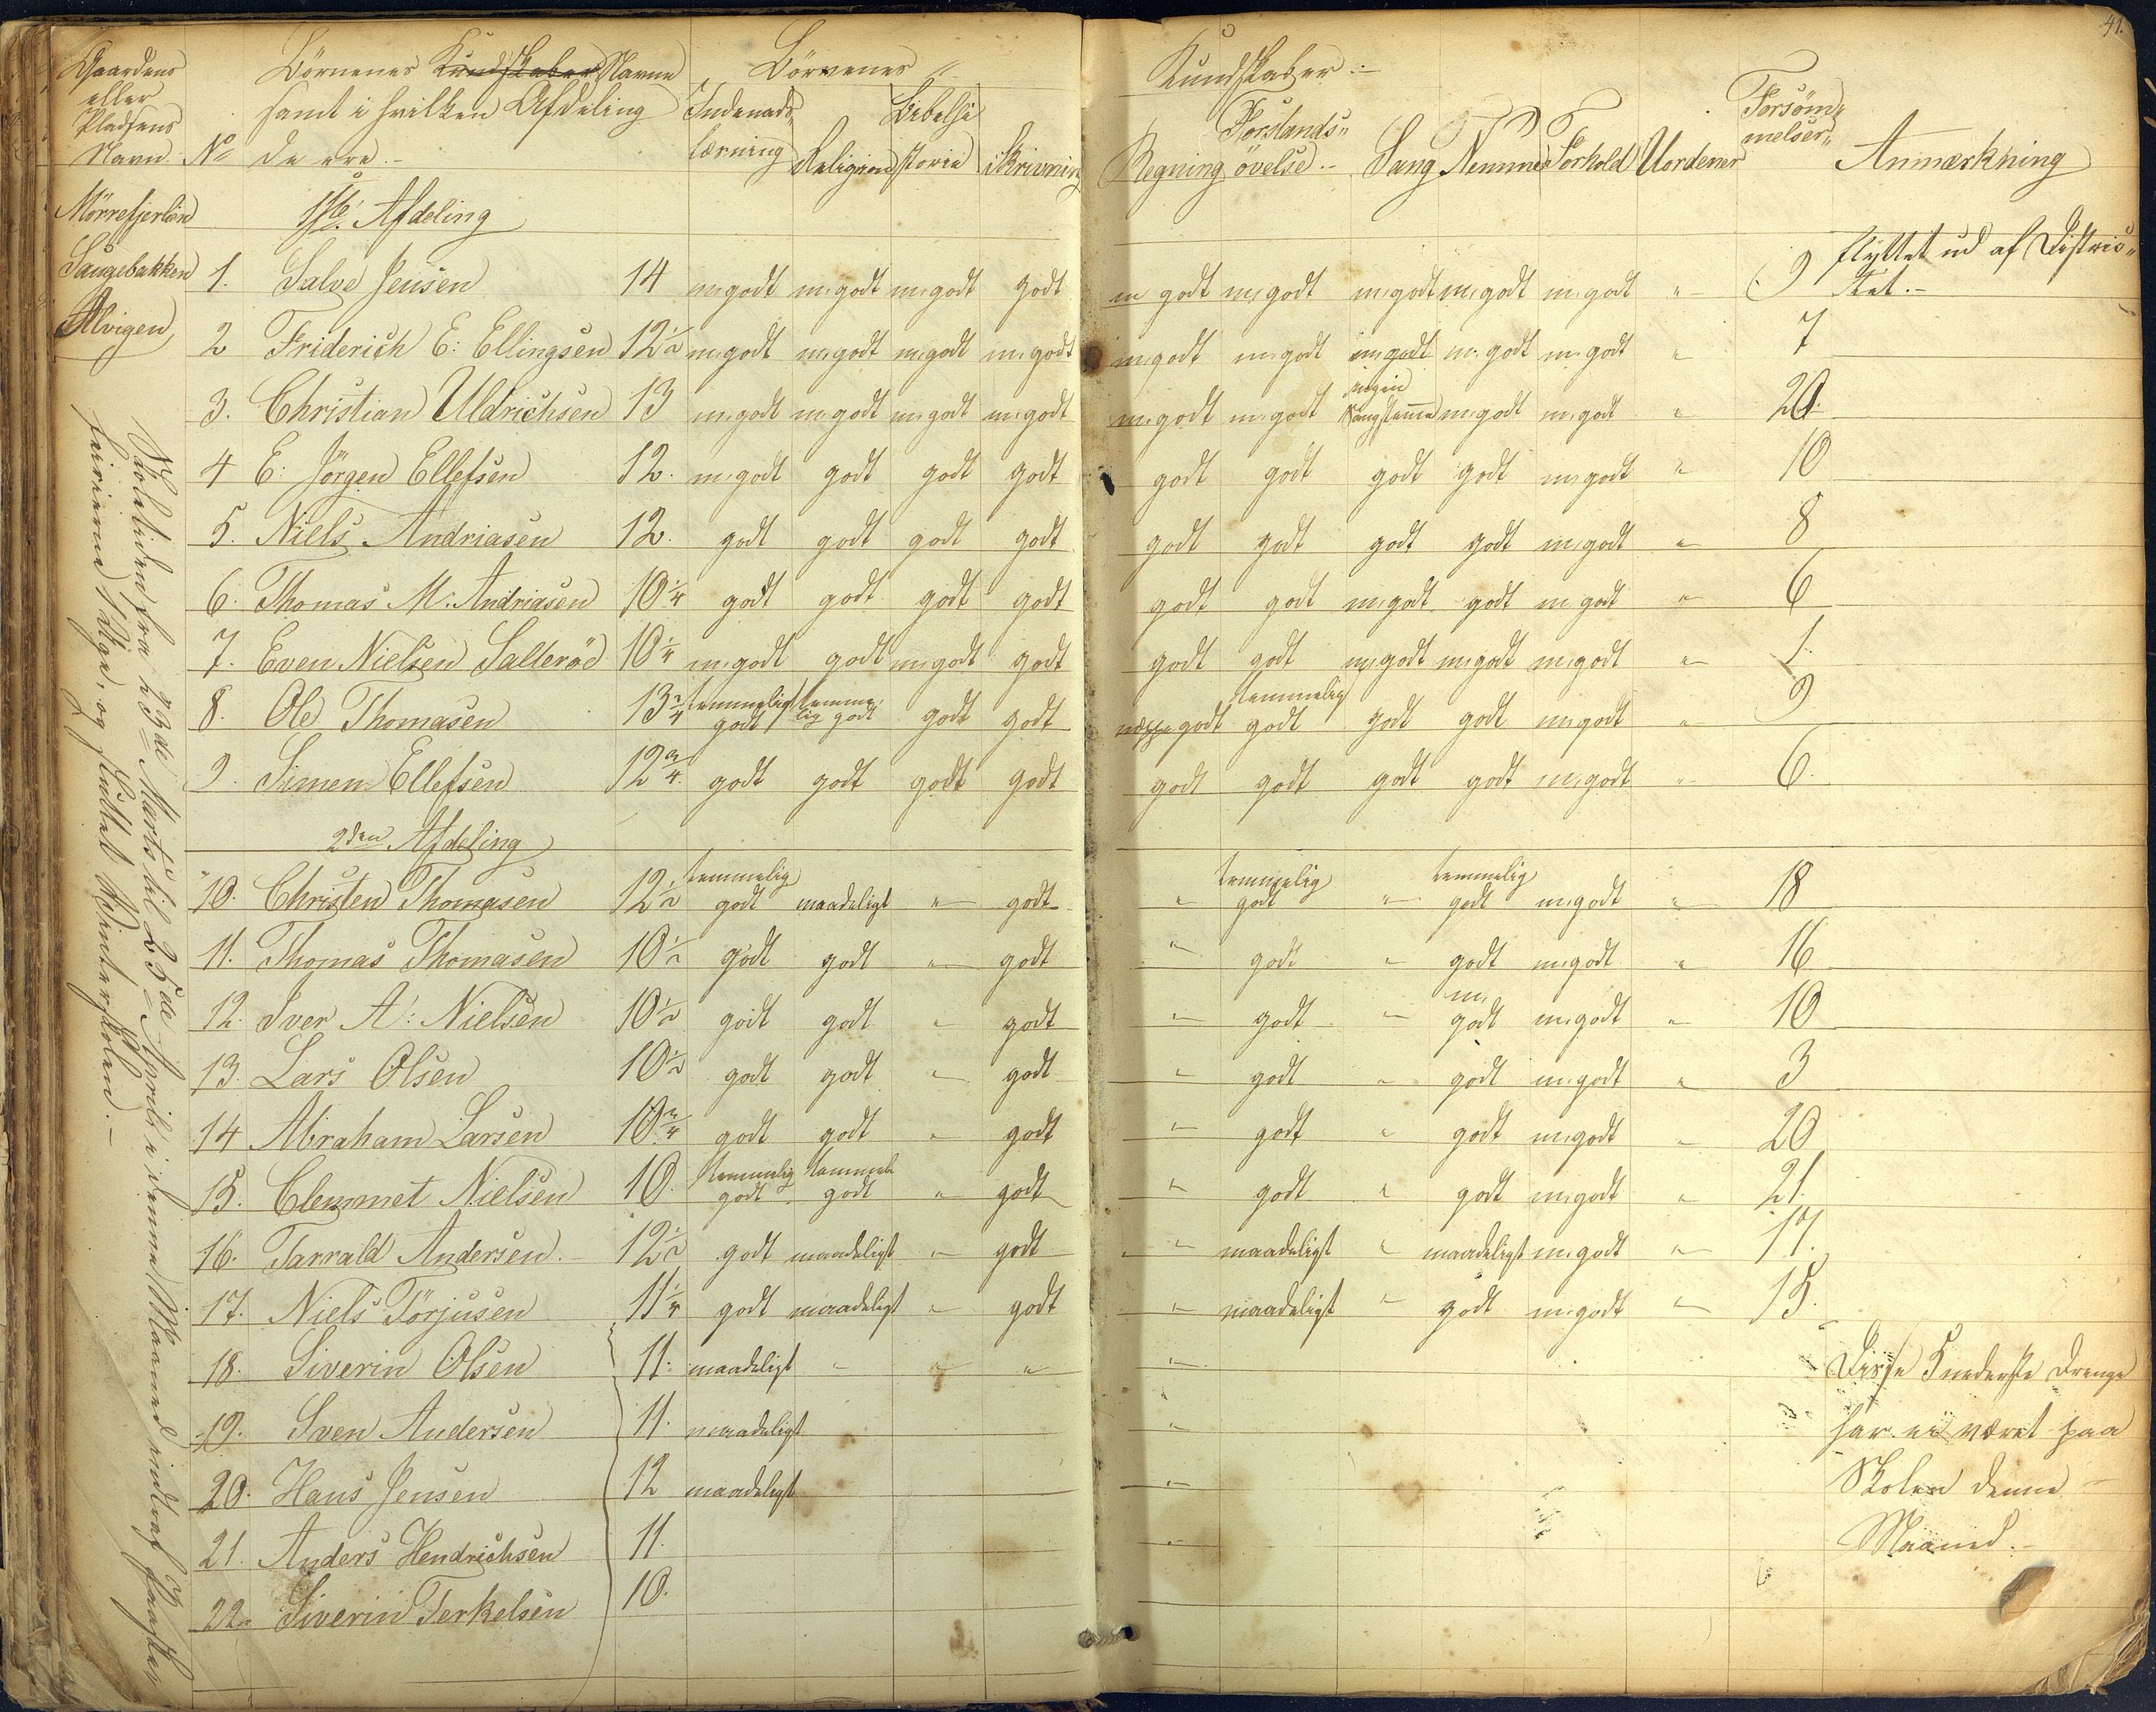 41.
Gaardens eller Pladsens Navn. No Börnenes Kundskaber Navne samt i hvilken Afdeling de ere.- Börnenes Kundskaber:-
Indenadslærning Religion Bibelhistorie Skrivning Regning Forstandsövelse.- Sang Nemme Forhold Uordener Forsömmelser Anmærkning
Mörrefjerlen 1ste Afdeling
Saugebakken 1. Salve Jensen 14 m.godt m.godt m.godt godt m godt m.godt m.godt m.godt m.godt " 9 flyttet ud af Districtet.-
Alvigen 2 Friderich E: Ellingsen 12½ m.godt m.godt m.godt m.godt m.godt m.godt m.godt m.godt m.godt " 7
3. Christian Uldrichsen 13 m.godt m.godt m.godt m.godt m.godt m.godt ingen Sangstemme m.godt m.godt " 20.
4 E: Jörgen Ellefsen 12. m.godt godt godt godt godt godt godt godt m.godt " 10
5. Niels Andriasen 12. godt godt godt godt godt godt godt godt m.godt " 8
6. Thomas M. Andriasen 10¼ godt godt godt godt godt godt m.godt godt m.godt " 6
7. Even Nielsen Salleröd 10¼ m.godt godt m.godt godt godt godt m.godt m.godt m.godt " 1.
8. Ole Thomasen 13¾ temmeligt godt temmelig godt godt godt næppe godt temmelig godt godt godt m.godt " 9
9. Simen Ellefsen 12¾. godt godt godt godt godt godt godt godt m.godt " 6.
2den Afdeling
10. Christen Thomasen 12½ temmelig godt maadeligt " godt " temmelig godt " temmelig godt m.godt " 18
11. Thomas Thomasen 10½ godt godt " godt " godt " godt m.godt " 16
12. Iver A: Nielsen 10½ godt godt " godt " godt " m. godt m.godt " 10
13. Lars Olsen 10½ godt godt " godt " godt " godt m.godt " 3
14 Abraham Larsen 10¾ godt godt " godt " godt " godt m.godt " 20
15. Clemmet Nielsen 10. temmelig godt temmeli godt " godt " godt " godt m.godt " 21.
16. Tarrald Andersen.- 12½ godt maadeligt " godt " maadeligt " maadeligt m.godt " 17.
17. Niels Törjusen 11¼ godt maadeligt " godt " maadeligt " godt m.godt " 15.
18. Siverin Olsen 11. maadeligt " " " " Disse 5 nederste Drenge
19. Sven Andersen 11. maadeligt " har ei været paa
20. Hans Jensen 12 maadeligt " Skolen denne
21. Anders Hendrichsen 11. " Maaned.-
22. Siverin Terkelsen 10.
Skoletiden fra 23de Marts til 25de April i denne Maaned indtraf Paaske
ferierne 1 Uge, og sluttet Vinterskolen.-